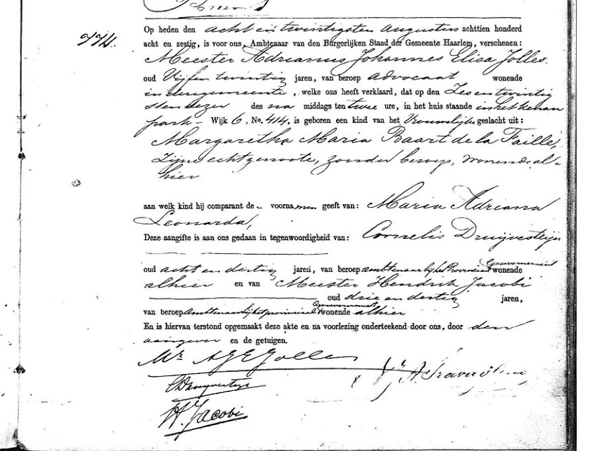 774.
Op heden den acht en twintigsten Augustus achttien honderd
acht en zestig, is voor ons, Ambtenaar van den Burgerlijken Stand der Gemeente Haarlem, verschenen:
Meester Adrianus Johannes Elisa Jolles.
oud Vijf en twintig jaren, van beroep advocaat wonende
in dezer gemeente, welke ons heeft verklaard, dat op den Zes en twintig
sten dezer des na middags ten twee ure, in het huis staande in het kenau
park – Wijk 6, No. 414, is geboren een kind van het Vrouwelijk geslacht uit:
Margaretha Maria Baart de la Faille,
Zijne echtgenoote, zonder beroep, wonende al-
hier
aan welk kind hij comparant de voornamen geeft van: Maria Adriana
Leonarda,
Deze aangifte is aan ons gedaan in tegenwoordigheid van: Cornelis Druijvesteijn
oud acht en dertig jaren, van beroep ambtenaar bij het Provinciaal Gouvernement wonende
alhier en van Meester Hendrik Jacobi
oud drie en dertig jaren,
van beroep ambtenaar bij het provinciaal Gouvernement wonende alhier
En is hiervan terstond opgemaakt deze akte en na voorlezing onderteekend door ons, door den
aangever en de getuigen.
Mr. AJE Jolles
CDruyvesteyn
H. Jacobi